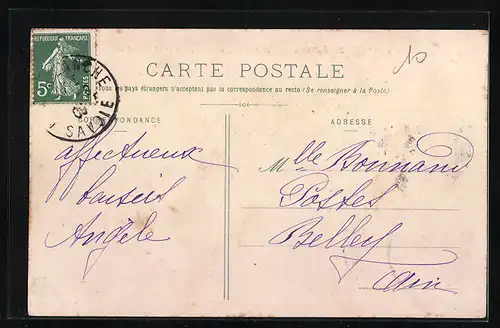 RÉPUBLIQUE FRANÇAISE
5c
POSTES
SAVOIE
10
CARTE POSTALE
Tous les pays étrangers n'acceptent pas la correspondance au recto (Se renseigner à la Poste.)
CORRESPONDANCE
ADRESSE
affectueux
baisers
Angèle
Mlle Bonnand
Postes
Belley
Ain